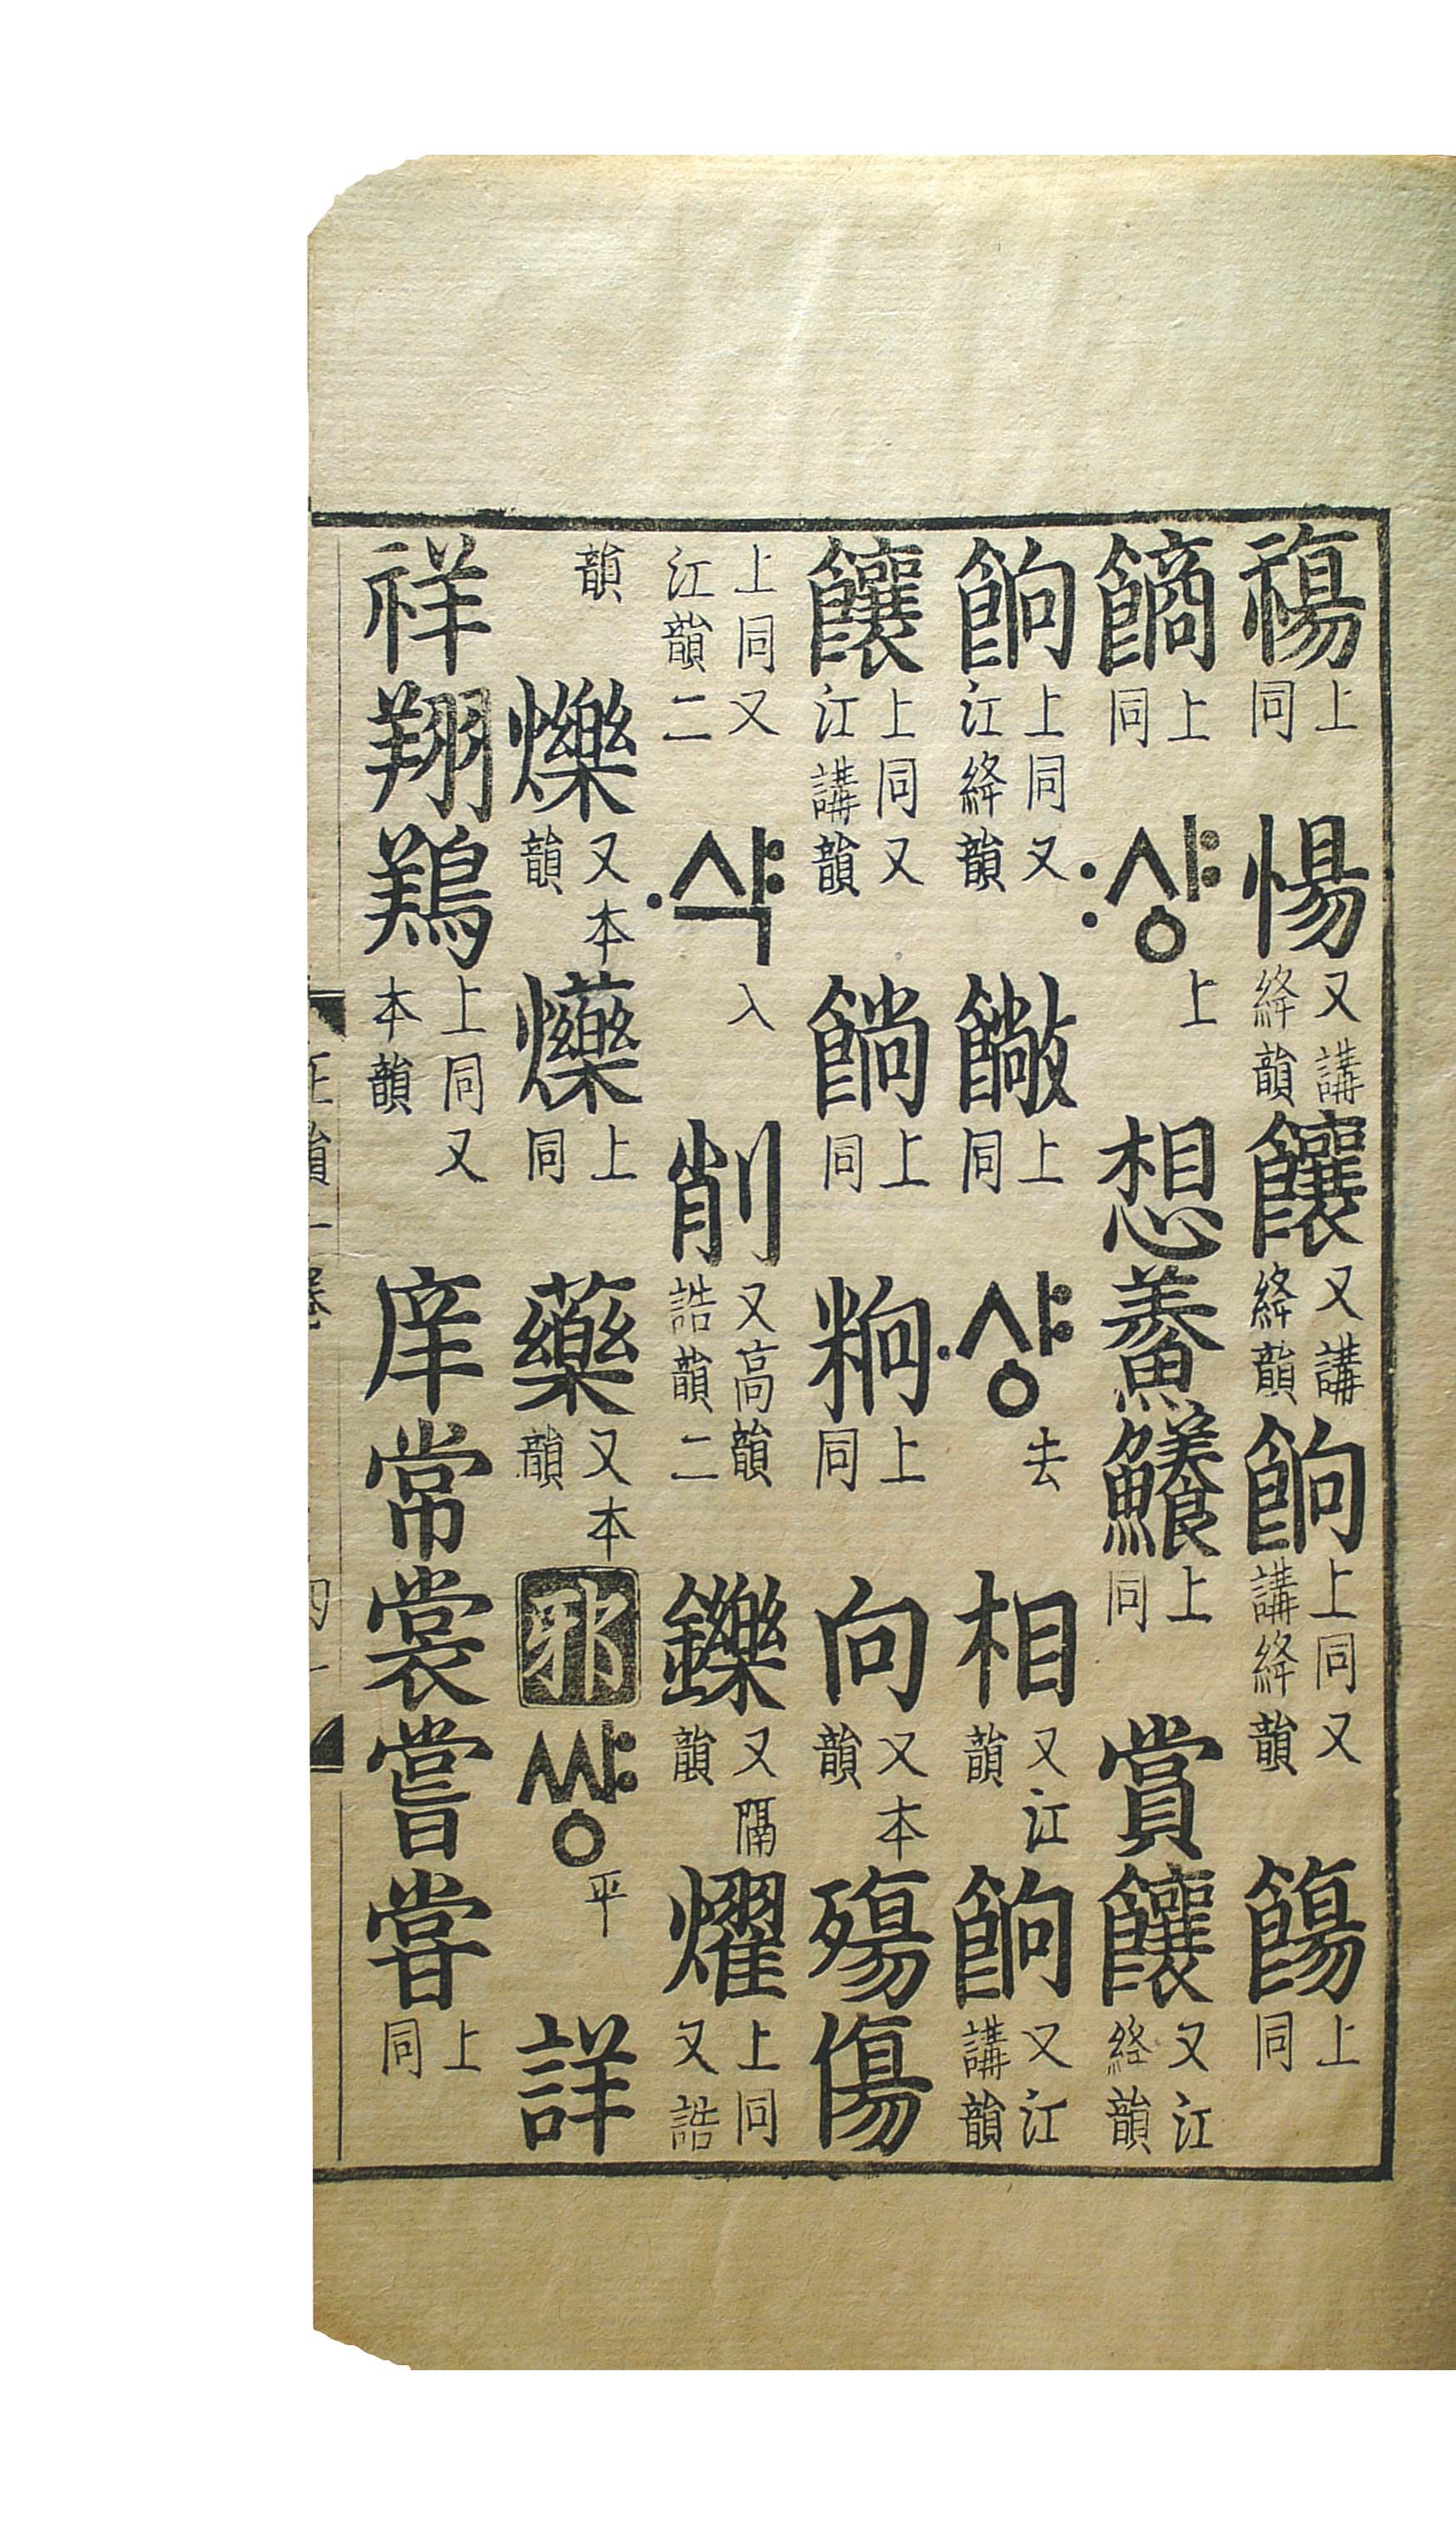 禓上同 愓又講絳韻饟又講絳韻餉上同又講絳韻 餳上同
上同 :샹上 想鯗鱶上同 賞饟又江絳韻
餉上同又江絳韻 上同 ·샹去 相又江韻餉又江講韻
饟上同又江講韻 上同 上同 向又本韻殤傷
上同又江韻二 ·샥入 削又高韻誥韻二 鑠又隔韻燿上同又誥
韻 爍又本韻 上同 藥又本韻 邪 썅平 詳
祥翔鴹上同又本韻 庠常裳嘗甞上同
正韻一卷